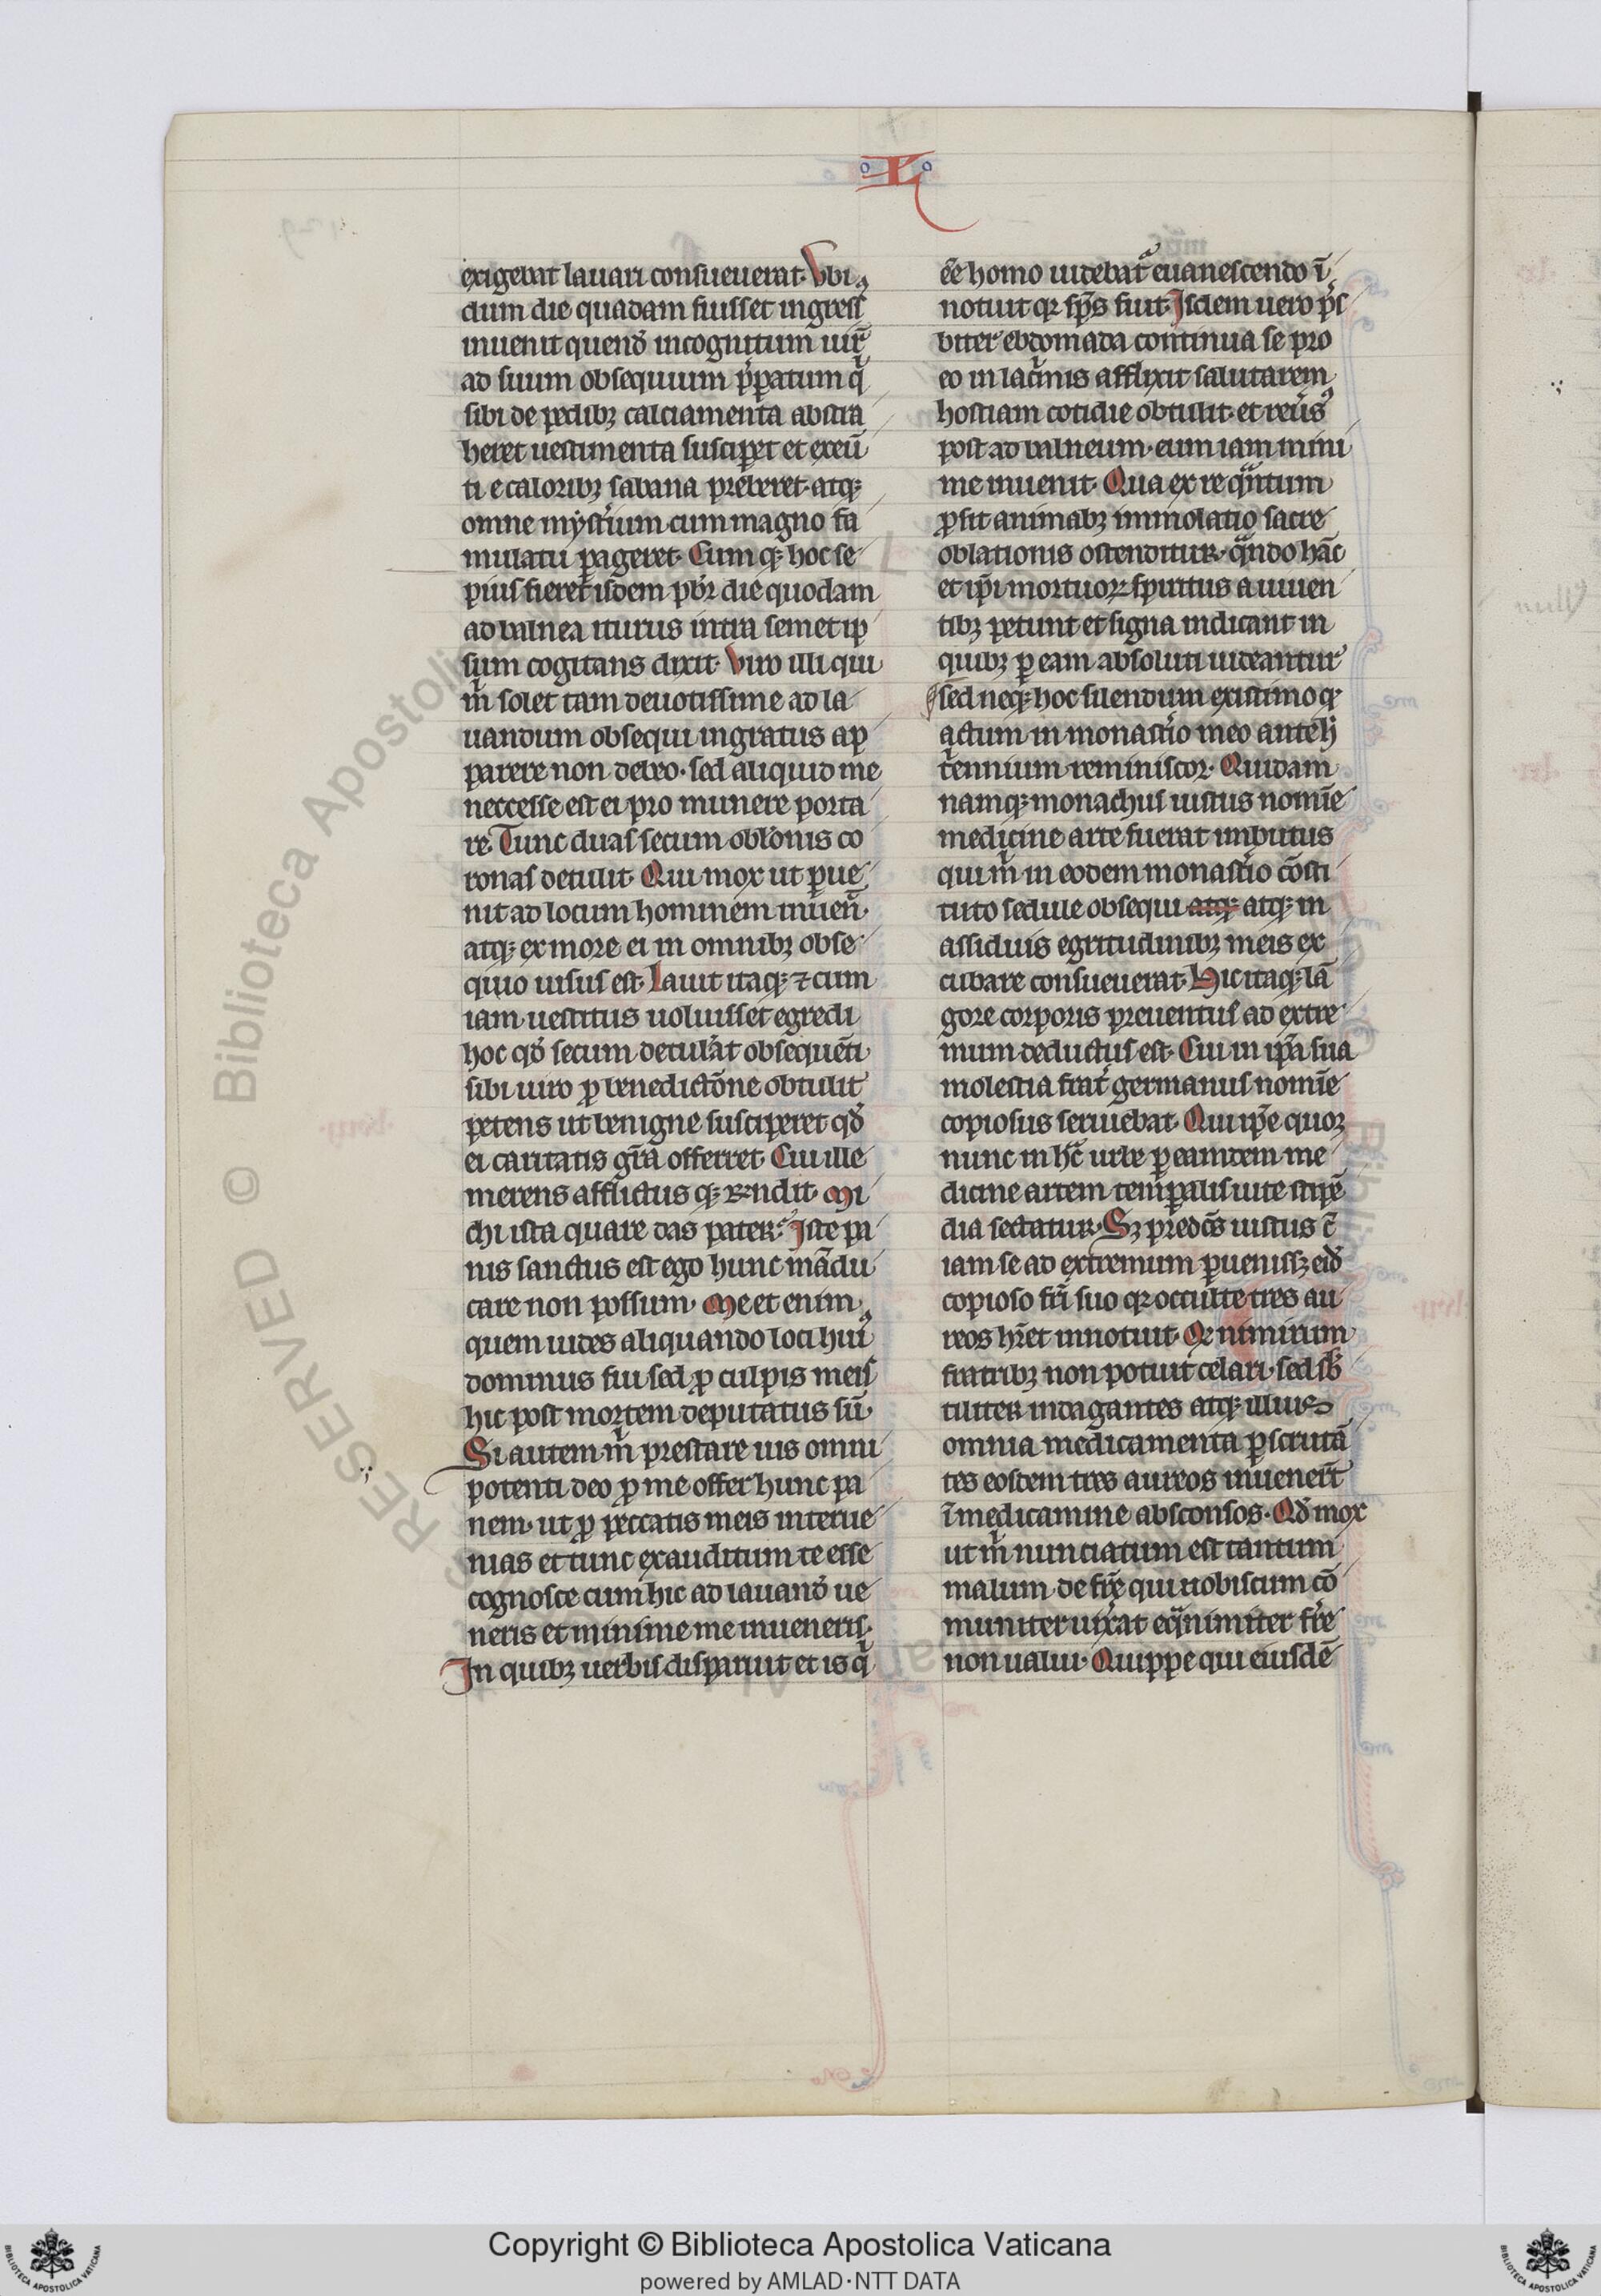 L
exigebat lauari consueuerat. Vbi
dum die quadam fuisset ingress᷒
inuenit quend̄ incognitum uiꝝ̄
ad suum obsequium p̄paratum qͥ
sibi de pedibꝫ calciamenta abstra
heret uestimenta susciꝑet et exeū
ti e caloribꝫ sabana preberet. atqꝫ
omne mysťium cum magno fa
mulatu ꝑageret. Cumqꝫ hoc se
pius fieret isdem pb̄r die quodam
ad balnea iturus intra semetip
sum cogitans dixit. Viro illi qui
mͥ solet tam deuotissime ad la
uandum obsequi ingratus ap
parere non debeo. sed aliquid me
neccesse est ei pro munere porta
re. Tunc duas secum obl̄onis co
ronas detulit. Qui mox ut ꝑue
nit ad locum hominem inuen̄.
atqꝫ ex more ei in omnibꝫ obse
quio uisus est. Lauit itaqꝫ ⁊ cum
iam uestitus uoluisset egredi
hoc qd̄ secum detul̓at obsequēti
sibi uiro ꝓ benedictōne obtulit
petens ut benigne susciperet qd̄
ei caritatis gr̄a offerret. Cui ille
merens afflictusqꝫ rn̄dit. Mi
chi ista quare das pater? Iste pa
nis sanctus est ego hunc mādu
care non possum. Me etenim
quem uides aliquando loci huiꝰ
dominus fui sed ꝓ culpis meis
hic post mortem deputatus sū.
Si autem mͥ prestare uis omni
potenti deo ꝓ me offer hunc pa
nem. ut ꝓ peccatis meis interue
nias et tunc exauditum te esse
cognosce cum hic ad lauand̄ ue
neris et minime me inueneris.
In quibꝫ uerbis disparuit et is qͥ
eē homo uidebat᷑ euanescendo ī
notuit qꝛ sp̄s fuit. Isdem uero pͥs
biter ebdomada continua se pro
eo in lacͥmis afflixit salutarem
hostiam cotidie obtulit. et reūsꝰ
post ad balneum. eum iam mini
me inuenit. Qua ex re qͣntum
ꝓsit animabꝫ immolatio sacre
oblationis ostenditur. qͣndo hāc
et ip̄i mortuoꝝ spiritus a uiuen
tibꝫ petunt et signa indicant in
quibꝫ ꝑ eam absoluti uideantur
sed neqꝫ hoc silendum existimo qꝫ
actum in monasťio meo ante hͦ
tͥennium reminiscor. Quidam
namqꝫ monachus iustus nomīe
medicine arte fuerat imbutus
qui mͥ in eodem monasťio cōsti
tuto sedule obsequi atqꝫ atqꝫ in
assiduis egritudinibꝫ meis ex
cubare consueuerat. Hic itaqꝫ lā
gore corporis preuentus ad extre
mum deductus est. Cui in ip̄a sua
molestia frat̓ germanus nomīe
copiosus seruiebat. Qui ip̄e quoqꝫ
nunc in hͨ urbe ꝑ eamdem me
dicine artem temꝑalis uite stipē
dia sectatur. Sꝫ predc̄s iustus c̄
iam se ad extremum ꝑuenissꝫ eid̄
copioso fr̄i suo qꝛ occulte tres au
reos hr̄et innotuit. Qꝛ nimirum
fratribꝫ non potuit celari. sed sb̄
tiliter indagantes atqꝫ illius
omnia medicamenta ꝑscrutā
tes eosdem tres aureos inuener̄t
ī medicamine absconsos. Qd̄ mox
ut mͥ nunciatum est tantum
malum de fr̄e qui nobiscum cō
muniter uix̓at eqͣnimiter fr̄e
non ualui. Quippe qui eiusdē
Copyright © Biblioteca Apostolica Vaticana
powered by AMLAD·NTT DATA